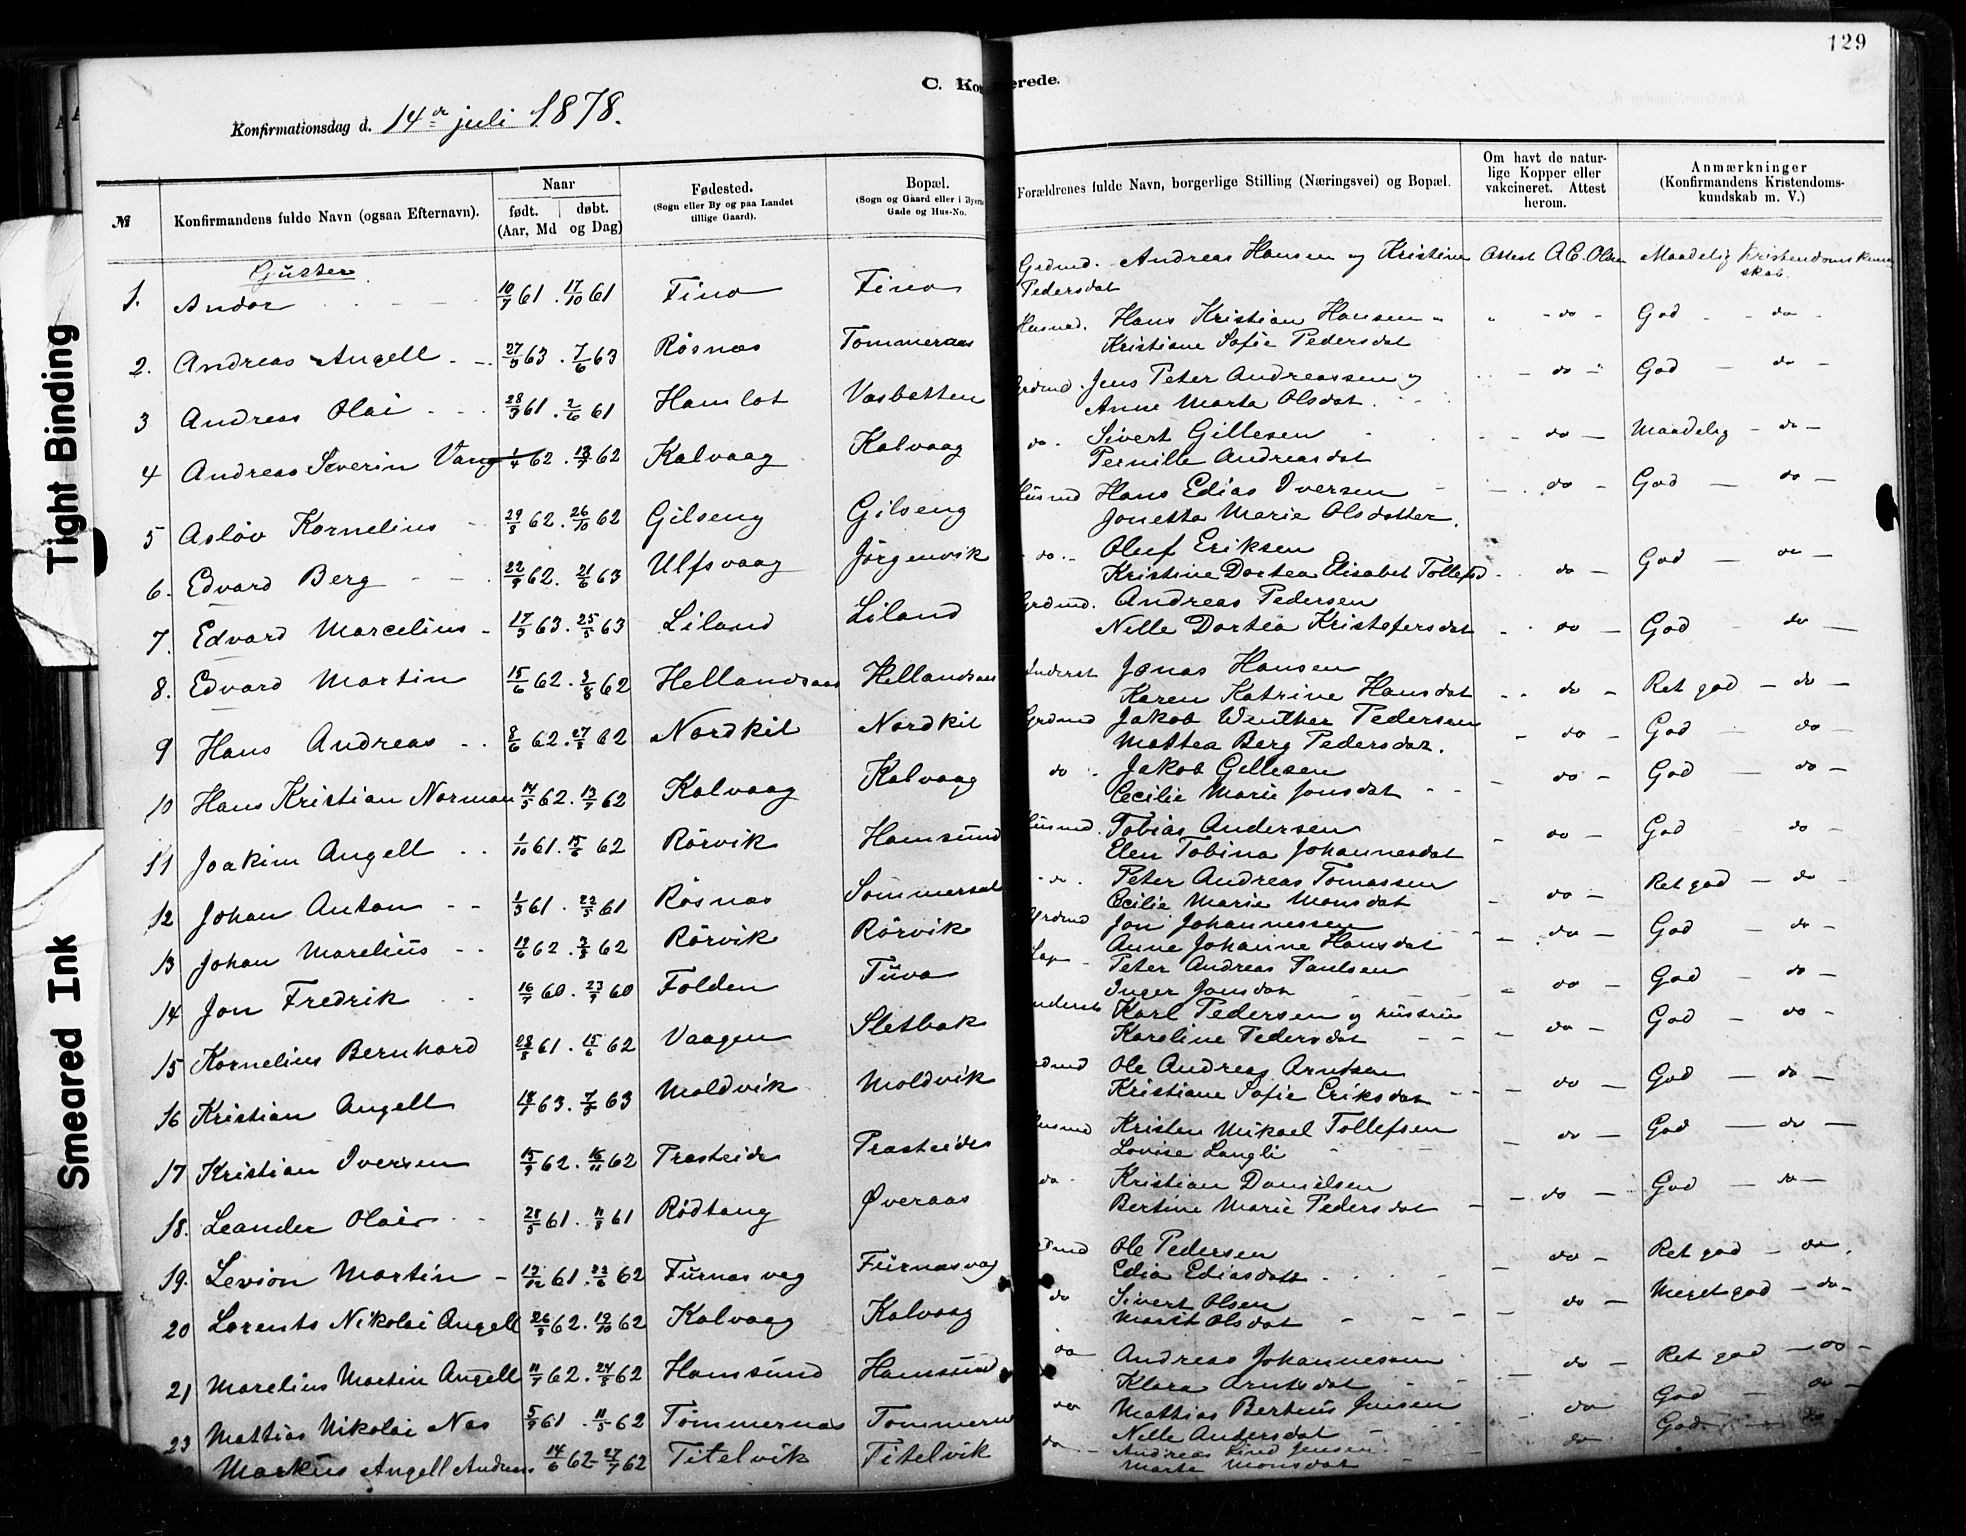 129
C. Ko
erede.
Konfirmationsdag d. 14de juli 1878.
№
Konfirmandens fulde Navn (ogsaa Efternavn).
Naar
født. døbt.
(Aar, Md og Dag)
Fødested.
(Sogn eller By og paa Landet tillige Gaard).
Bopæl.
(Sogn og Gaard eller i Byerne Gade og Hus-No.
Forældrenes fulde Navn, borgerlige Stilling (Næringsvei) og Bopæl.
Om havt de naturlige Kopper eller vakcineret. Attest herom.
Anmærkninger
(Konfirmandens Kristendomskundskab m. V.)
Gutter
1. Andor - - - 10/7 61. 17/10 61 Fino Fino Grdmd. Andreas Hansen og Kristine Pedersdat Attest A.C. Olsen Maadelig Kristendomskundskab.
2. Andreas Angell - - 27/3 63. 7/6 63 Røsnæs Tommeraas Husmd. Hans Kristian Hansen " Kristiane Sofie Pedersdat " - do - God - - do -
3 Andreas Olai - - 28/3 61. 2/6 61 Hamlot Vasbotten Grdmd. Jens Peter Andreassen og Anne Marta Olsdat. - do - God - do -
4 Andreas Severin Vang 1/4 62. 13/7 62 Kalvaag Kalvaag do - Sivert Gillesen Pernille Andreasdat - - do - Maadelig - do -
5 Asløv Kornelius - 29/8 62. 26/10 62 Gilseng Gilseng Husmd Hans Edias Iversen Jonetta Marie Olsdatter. - do - God - do -
6. Edvard Berg - - 22/9 62. 21/6 63 Ulfsvaag Jørgenvik - do - Oluf Eriksen Kristine Dortea Elisabet Tollefsd - do - God - do -
7. Edvard Marcelius - 17/3 63. 25/5 63 Liland Liland Grdmd. Andreas Pedersen Nelle Dortea Kristofersdat - do - God - do -
8. Edvard Martin 15/6 62. 3/8 62 Hellandsaas Hellandsaas Inderst Jonas Hansen Karen Katrine Hansdat - - do - Ret god - do -
9 Hans Andreas - - 8/6 62. 27/8 62 Nordkil Nordkil Grdmd Jakob Wenther Pedersen Mattea Berg Pedersdat. - do - God - do -
10 Hans Kristian Norman 14/5 62. 13/7 62 Kalvaag Kalvaag do - Jakob Gillesen Cecilie Marie Jonsdat - - - do - God - do -
11 Joakim Angell - - 1/10 61. 15/6 62 Rørvik Hamsund Husmd. Tobias Andersen Elen Tobina Johannesdat - do - God - do -
12 Johan Anton - - 1/3 61. 22/5 61 Røsnæs Sommersæl - do. Peter Andreas Tomassen Cecilie Marie Monsdat - do - Ret god - do -
13 Johan Marelius - - 19/6 62. 3/8 62 Rørvik Rørvik Grdmd Jon Johannessen Anne Johanne Hansdat - do - God - do -
14 Jon Fredrik - - 16/7 60. 23/9 60 Folden Tuva Lap - Peter Andreas Paulsen Inger Jonsdat - do - God - do -
15 Kornelius Bernhard 28/8 61. 15/6 62 Vaagen Sletbak nderst Karl Pedersen og hustru Karoline Pedersdat - - - do - God - do -
16 Kristian Angell 18/7 63. 7/8 63 Moldvik Moldvik rdmd Ole Andreas Arntsen Kristiane Sofie Eriksdat - - - do - God - do -
17 Kristian Iversen 15/9 62. 16/11 62 Præsteide Præsteide usmd Kristen Mikael Tollefsen Lovise Langli - - do - God - do -
18. Leander Olai - - 28/5 61. 11/8 61 Rødtang Øveraas do - Kristian Danielsen Bertine Marie Pedersdat - - do - God - do -
19. Levion Martin - 19/12 61. 22/6 62 Furnæsvag Furnæsvag dmd Ole Pedersen Edia Ediasdatt - - - do - Ret god - do.
20 Lorents Nikolai Angell 26/8 62. 19/10 62 Kalvaag Kalvaag do Sivert Olsen Marit Olsdat - - - do - Meget god - do -
21 Marelius Martin Angell 11/7 62. 24/8 62 Hamsund Hamsund do Andreas Johannessen Klara Arntsdat - - do - Ret god - do -
23 Mattias Nikolai Næs 5/9 61. 11/5 62 Tommernæs Tommern do Mathias Berteus Jensen Nelle Andersdat - do God - do -
Markus Angell Andreas 14/6 62 - 27/7 62 Titelvik Titelvik do - Andreas Lind Jensen Marte Monsdat - do God - do
Tight Binding
Smeared Ink